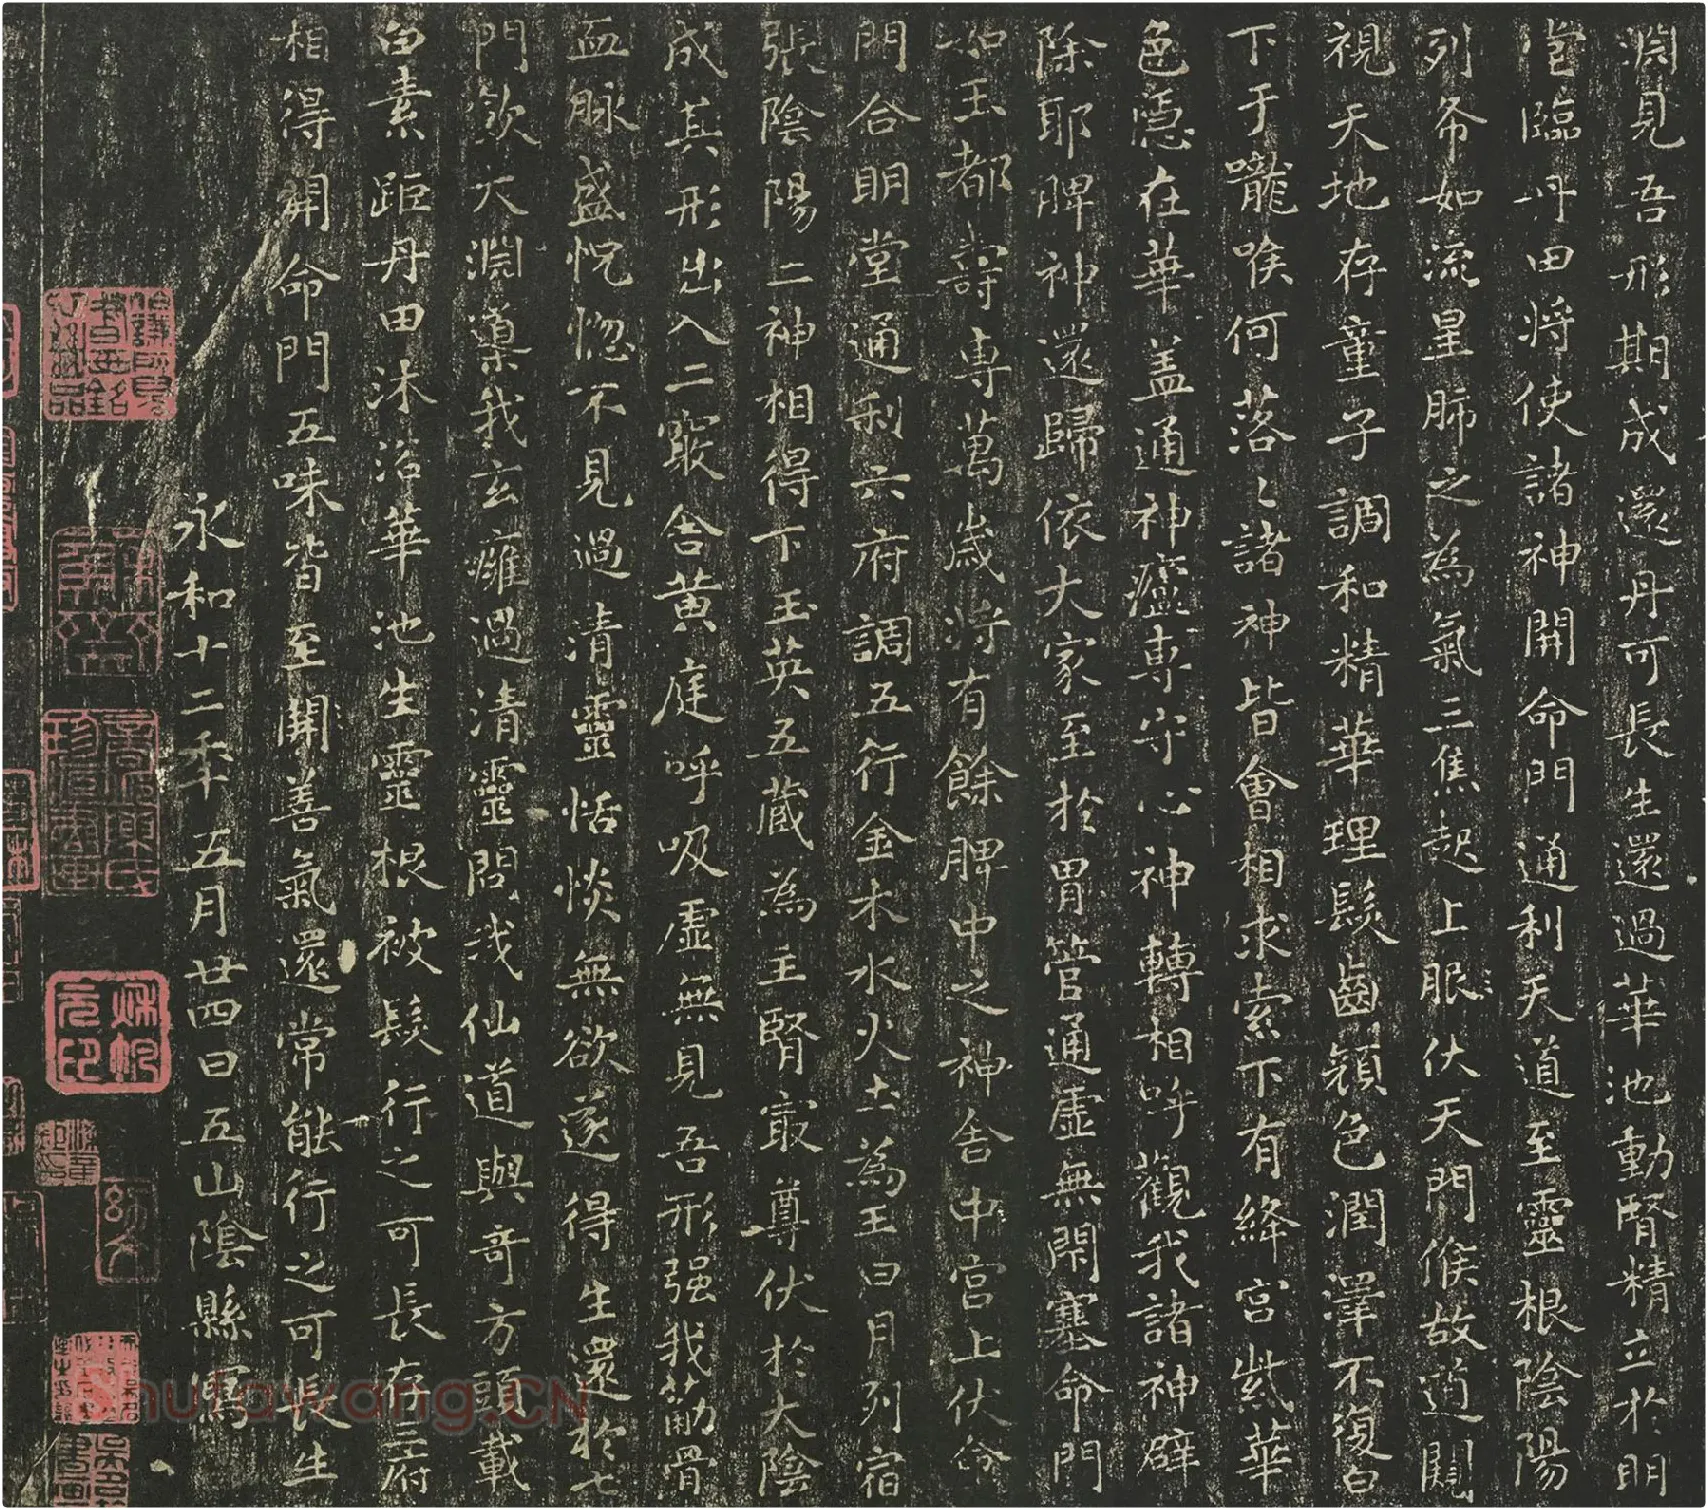 淵見吾形期成還丹可長生還過華池動腎精立於明
堂臨丹田將使諸神開命門通利天道至靈根陰陽
列布如流星肺之為氣三焦起上眼伏天門候故道闚
視天地存童子調和精華理髮齒顏色潤澤不復白
下于嚨喉何落〻諸神皆會相求索下有絳宮紫華
色隱在華盖通神廬專守心神轉相呼觀我諸神辟
除耶脾神還歸依大家至於胃管通虛無閉塞命門
如玉都壽專萬歲將有餘脾中之神舍中宮上伏命
門合明堂通利六府調五行金木水火土為王日月列宿
張陰陽二神相得下玉英五藏為主腎最尊伏於大陰
成其形出入二竅舍黃庭呼吸虛無見吾形强我筋骨
血脉盛怳惚不見過清靈恬惔無欲遂得生還於七
門飲大淵導我玄癰過清靈問我仙道與奇方頭載
白素距丹田沐浴華池生靈根被髮行之可長存二府
相得開命門五味皆至開善氣還常能行之可長生
永和十二年五月廿四日五山陰縣寫
shufawang.CN